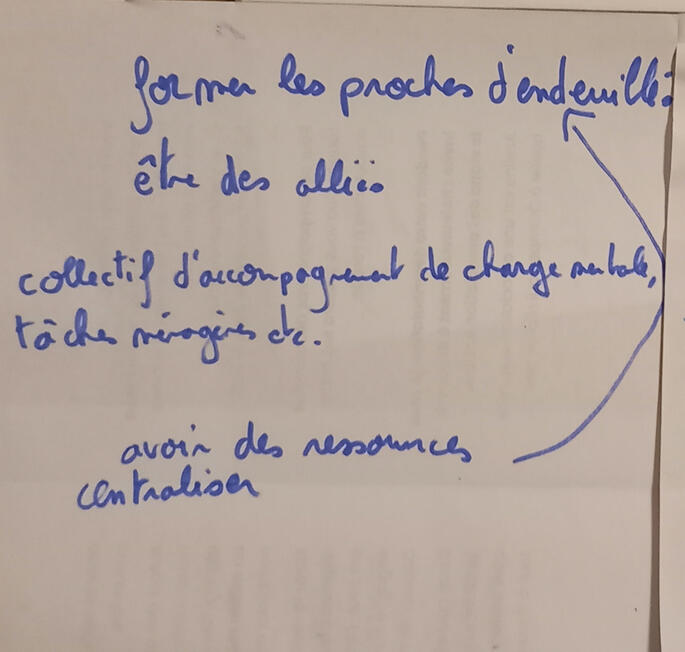 former les proches d'endeuillé:
être des alliés
collectif d'accompagnement de charge mentale,
tâches ménagères etc.
avoir des ressources
centraliser